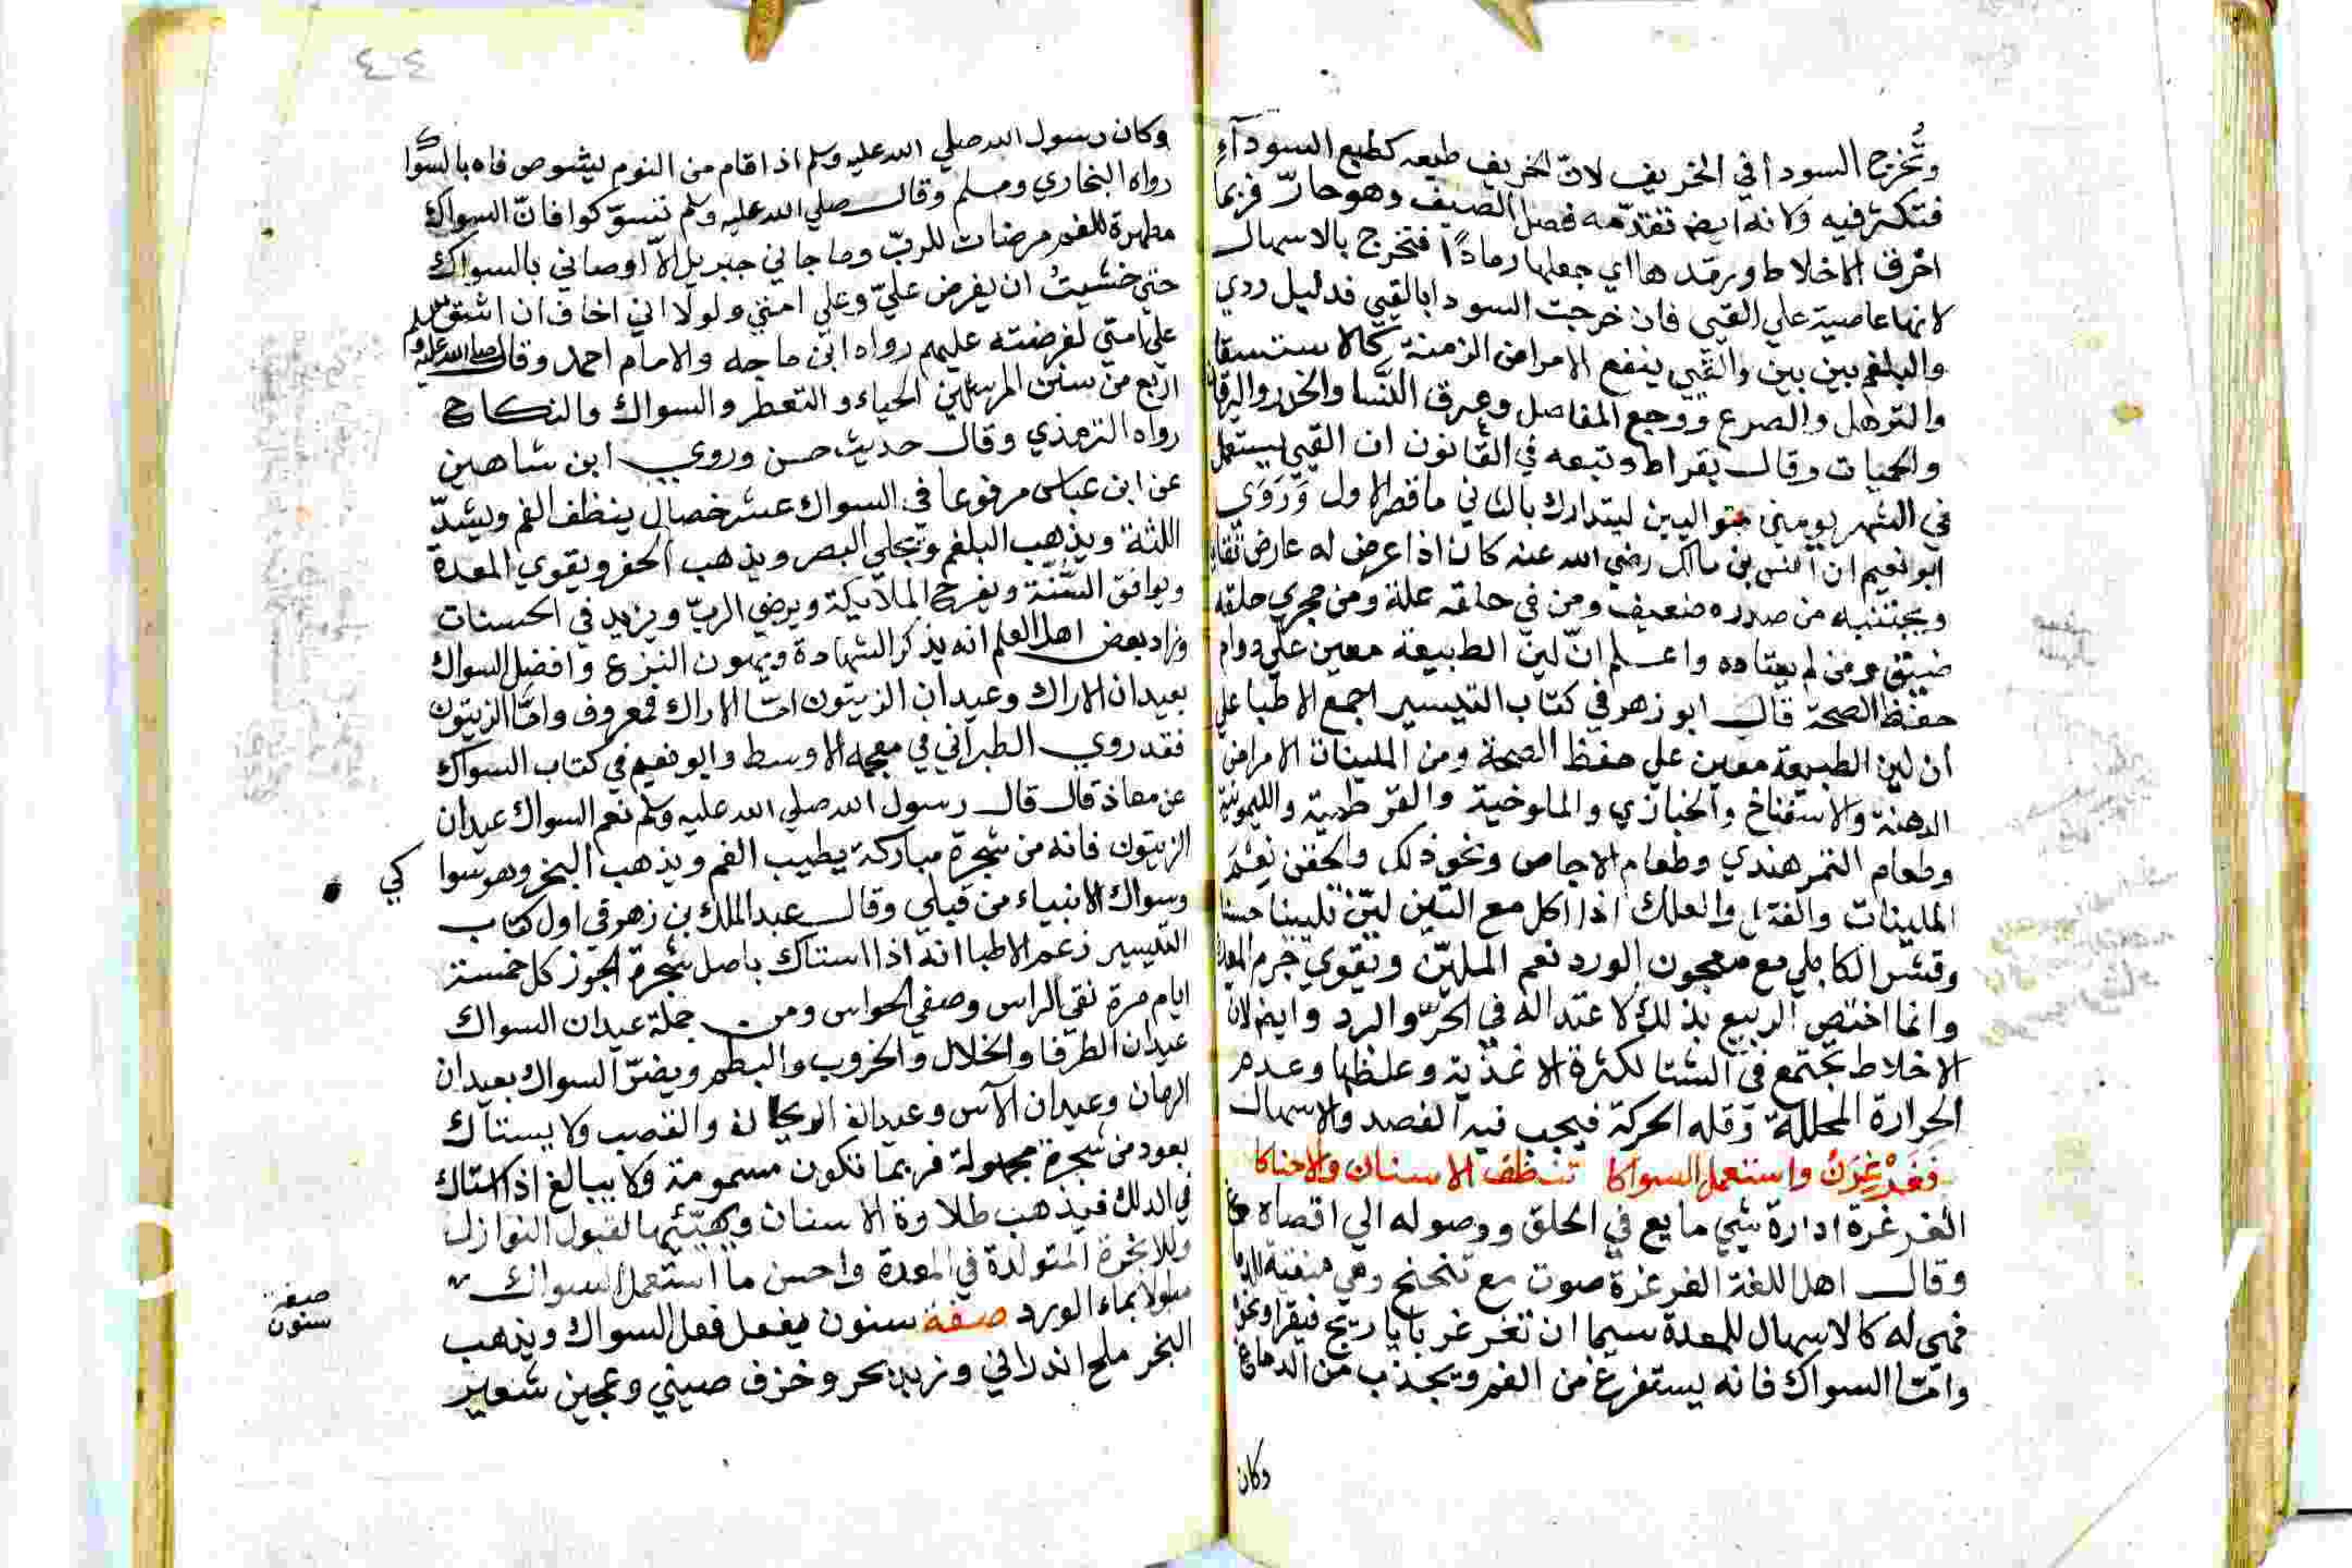 وتُخرج السودا في الخريف لانّ الخريف طبعه كطبع السودآءِ
فتكثر فيه ولانه ايض تقدّمه فصل الصيف وهو حارّ فربما
احرق الاخلاط ورمّدها اي جعلها رمادًا فتخرج بالاسهال
لانها عاصية علي القيي فان خرجت السودا بالقيي فدليل ردي
والبلغم بين بين والقيي ينفع الامراض الزمنة كالاستسقا
والترهل والصرع ووجع المفاصل وعرق النَّسا والخدر واليرقان
والحميات وقال بقراط وتبعه في القانون ان القيي يستعمل
في الشهر يومين متواليين ليتدارك بالثاني ما قصر الاول وَرَوَي
ابو نعيم ان انس بن مالك رضي الله عنه كان اذا عرض له عارض تقايا
ويجتنبه من صدره ضعيف ومن في حلقه علة ومن مجري حلقه
ضيّق ومن لم يعتاده واعلم انّ لين الطبيعة معين علي دوام
حفظ الصحة قال ابو زهر في كتاب التيسير اجمع الاطبا علي
ان لين الطبيعة معين علي حفظ الصحة ومن الملينات الامراض
الدهنة والاسفناخ والخبازي والملوخية والقرطمية والليمونية
وطعام التمر هندي وطعام الاجاص ونحو ذلك والحقن نِعْمَ
الملينات والفتل والعلك اذا اكل مع التين ليّن تليينا حسنا
وقشر الكابلي مع معجون الورد نعم المليّن ويقوي جرم المعدة
وانما اختص الربيع بذلك لاعتداله في الحرّ والبرد وايض لان
الاخلاط تجتمع في الشتا لكثرة الاغذية وغلظها وعدم
الحرارة المحللة وقله الحركة فيجب فيه الفصد والاسهال
فَغَرْغِرَنْ واستعمل السواكا تنظف الاسنان والاحناكا
الغرغرة ادارة شيي مايع في الحلق ووصوله الي اقصاه
وقال اهل اللغة الغرغرة صوت مع تنحنح وهي منقية للدماغ
فهي له كالاسهال للمعدة سيما ان تغرغر بايارج فيقرا ونحوه
وامّا السواك فانه يستفرغ من الفم ويجذب من الدماغ
وكان
٤٤
وكان رسول الله صلي الله عليه وسلم اذا قام من النوم ليشوص فاه بالسواك
رواه البخاري ومسلم وقال صلي الله عليه وسلم تسوّكوا فانّ السواك
مطهرة للفم مرضات للربّ وما جاني جبريل الاّ اوصاني بالسواك
حتي خشيتُ ان يفرض عليّ وعلي امتي ولولا اني اخاف ان اشق
علي امتي لفرضته عليهم رواه ابن ماجه والامام احمد وقال صلي الله عليه وسلم
اربع من سنن المرسلين الحياء والتعطر والسواك والنكاح
رواه الترمذي وقال حديث حسن وروي ابن شاهين
عن ابن عباس مرفوعا في السواك عشر خصال ينظف الفم ويشدّ
اللثة ويذهب البلغم ويجلي البصر ويذهب الحفر ويقوي المعدة
ويوافق السُّنّة ويفرح الملايكة ويرضي الربّ ويزيد في الحسنات
وزاد بعض اهل العلم انه يذكر الشهادة ويهون النزع وافضل السواك
بعيدان الاراك وعيدان الزيتون امّا الاراك فمعروف وامّا الزيتون
فقد روي الطبراني في معجمه الاوسط وابو نعيم في كتاب السواك
عن معاذ قال قال رسول الله صلي الله عليه وسلم نعم السواك عيدان
الزيتون فانه من شجرة مباركة يطيب الفم ويذهب البخر وهو سوا كي
وسواك الانبياء من قبلي وقال عبد الملك بن زهر في اول كتاب
التيسير زعم الاطبا انه اذا استاك باصل شجرة الجوز كل خمسة
ايام مرة نقي الراس وصفي الحواس ومن جملة عيدان السواك
عيدان الطرفا والخلال والخروب والبطم ويضرّ السواك بعيدان
الرمان وعيدان الآس وعيدان الريحان والقصب ولا يستاك
بعود من شجرة مجهولة فربما تكون مسمومة ولا يبالغ اذا استاك
في الدلك فيذهب طلاوة الاسنان ويهيّئها لقبول النوازل
وللابخرة المتولدة في المعدة واحسن ما استعمل السواك
مبلولا بماء الورد صفة سنون يفعل فعل السواك ويذهب
البخر ملح اندراني وزبد بحر وخزف صيني وعجين شعير
صفة
سنون